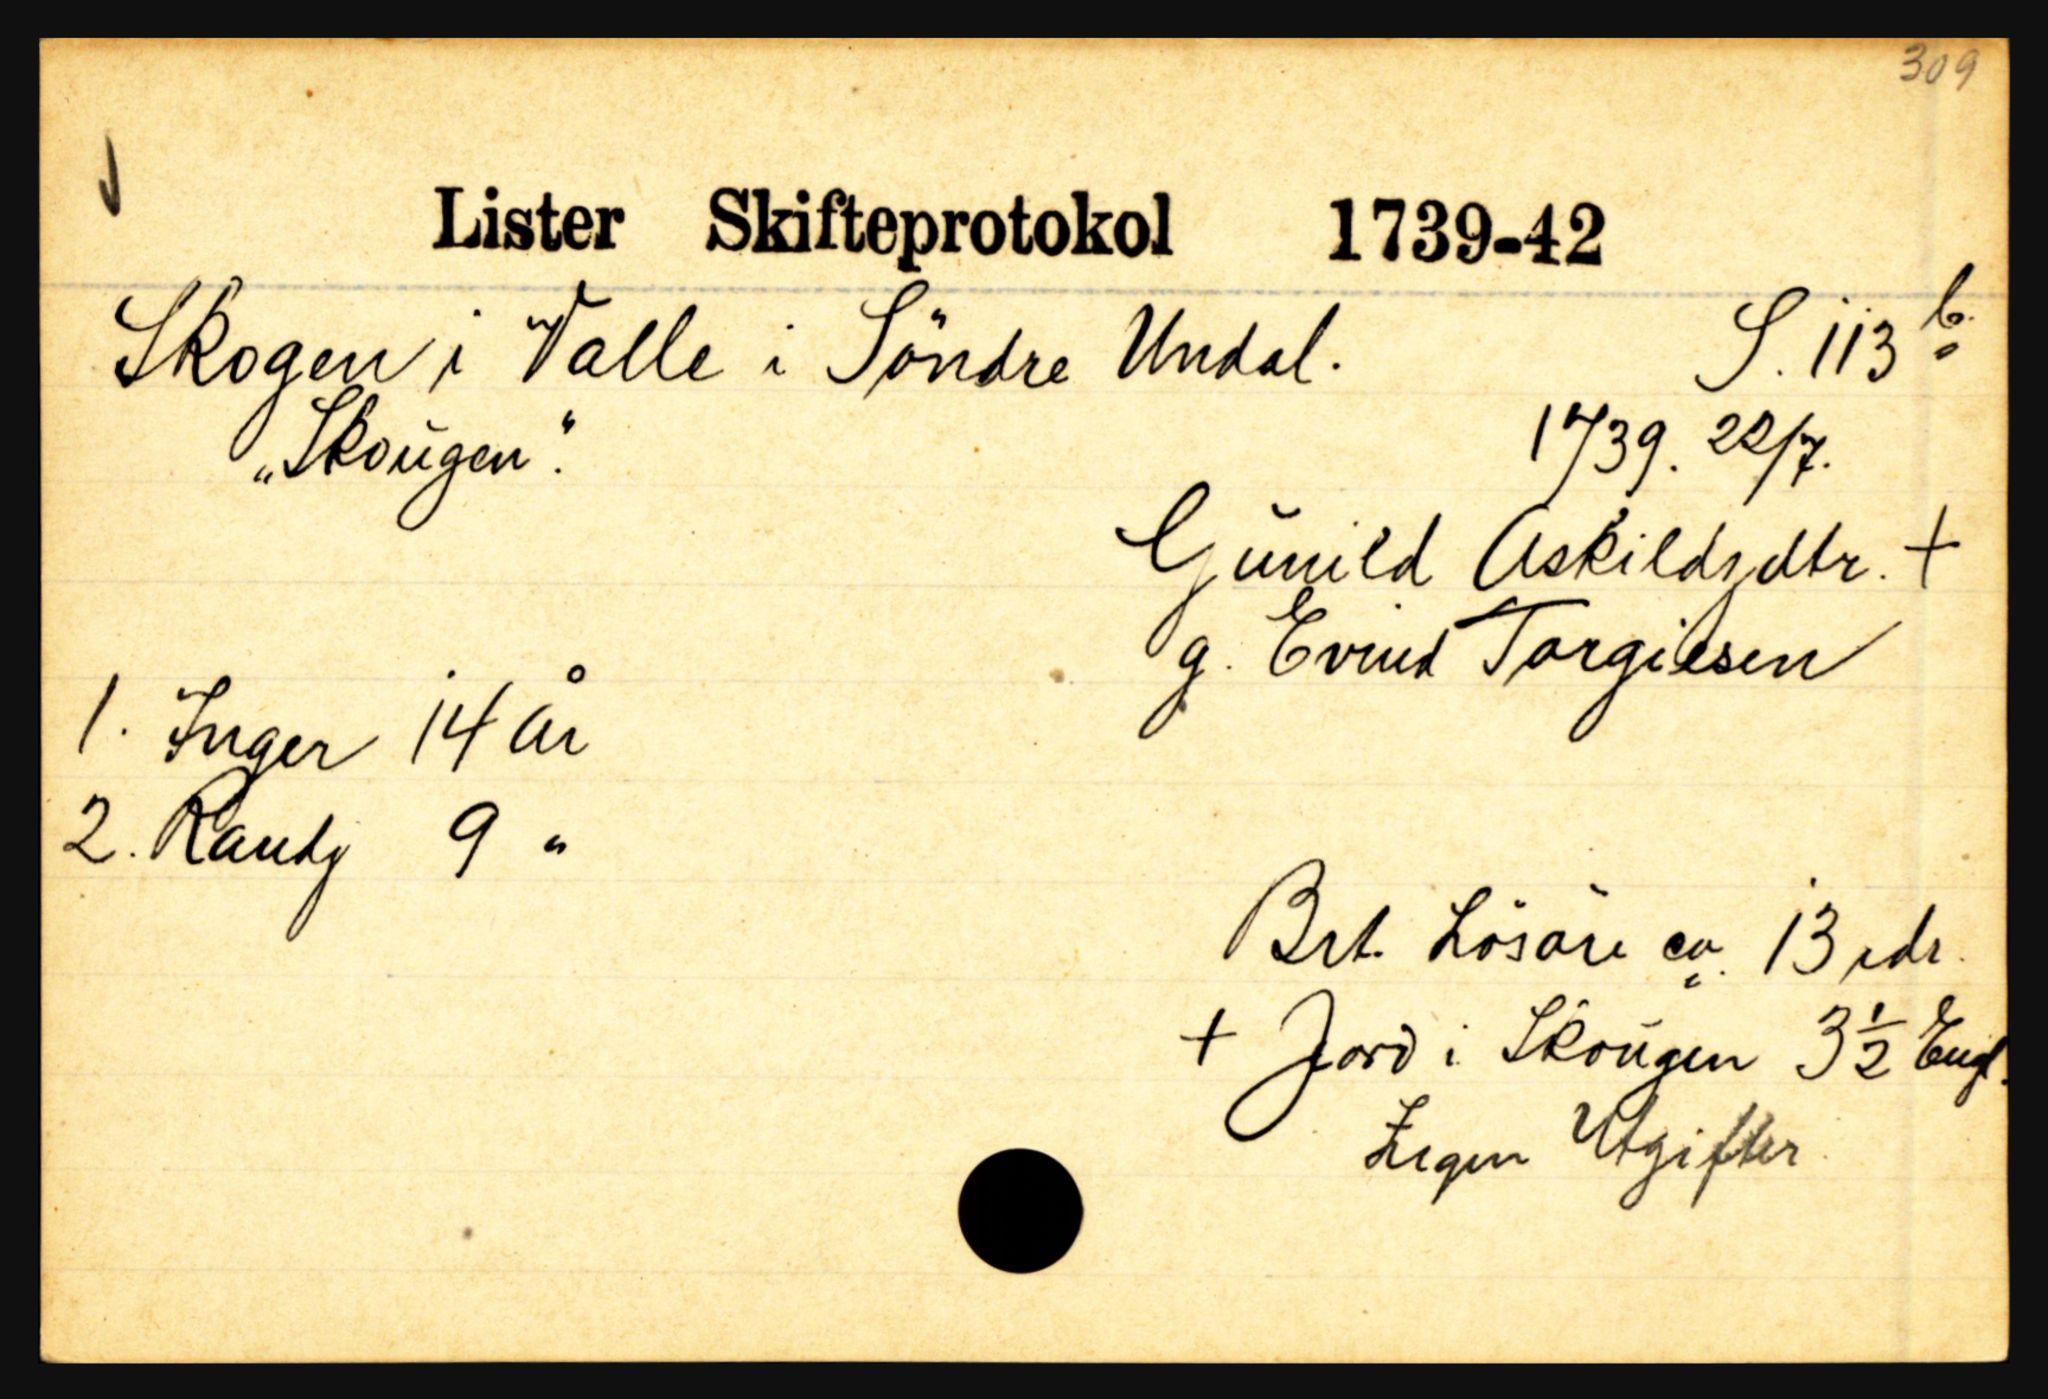 309
Lister Skifteprotokol 1739-42
Skogen i Valle i Söndre Undal. S. 113 b.
"Skoŭgen". 1739. 22/7.
Gŭnild Askildsdtr. +
g. Evind Torgiesen
1. Inger 14 år
2. Randj 9 "
Brt. Lösöre ca. 13 rdr.
+ Jord i Skoŭgen 3 1/2 Engl.
Ingen Utgifter